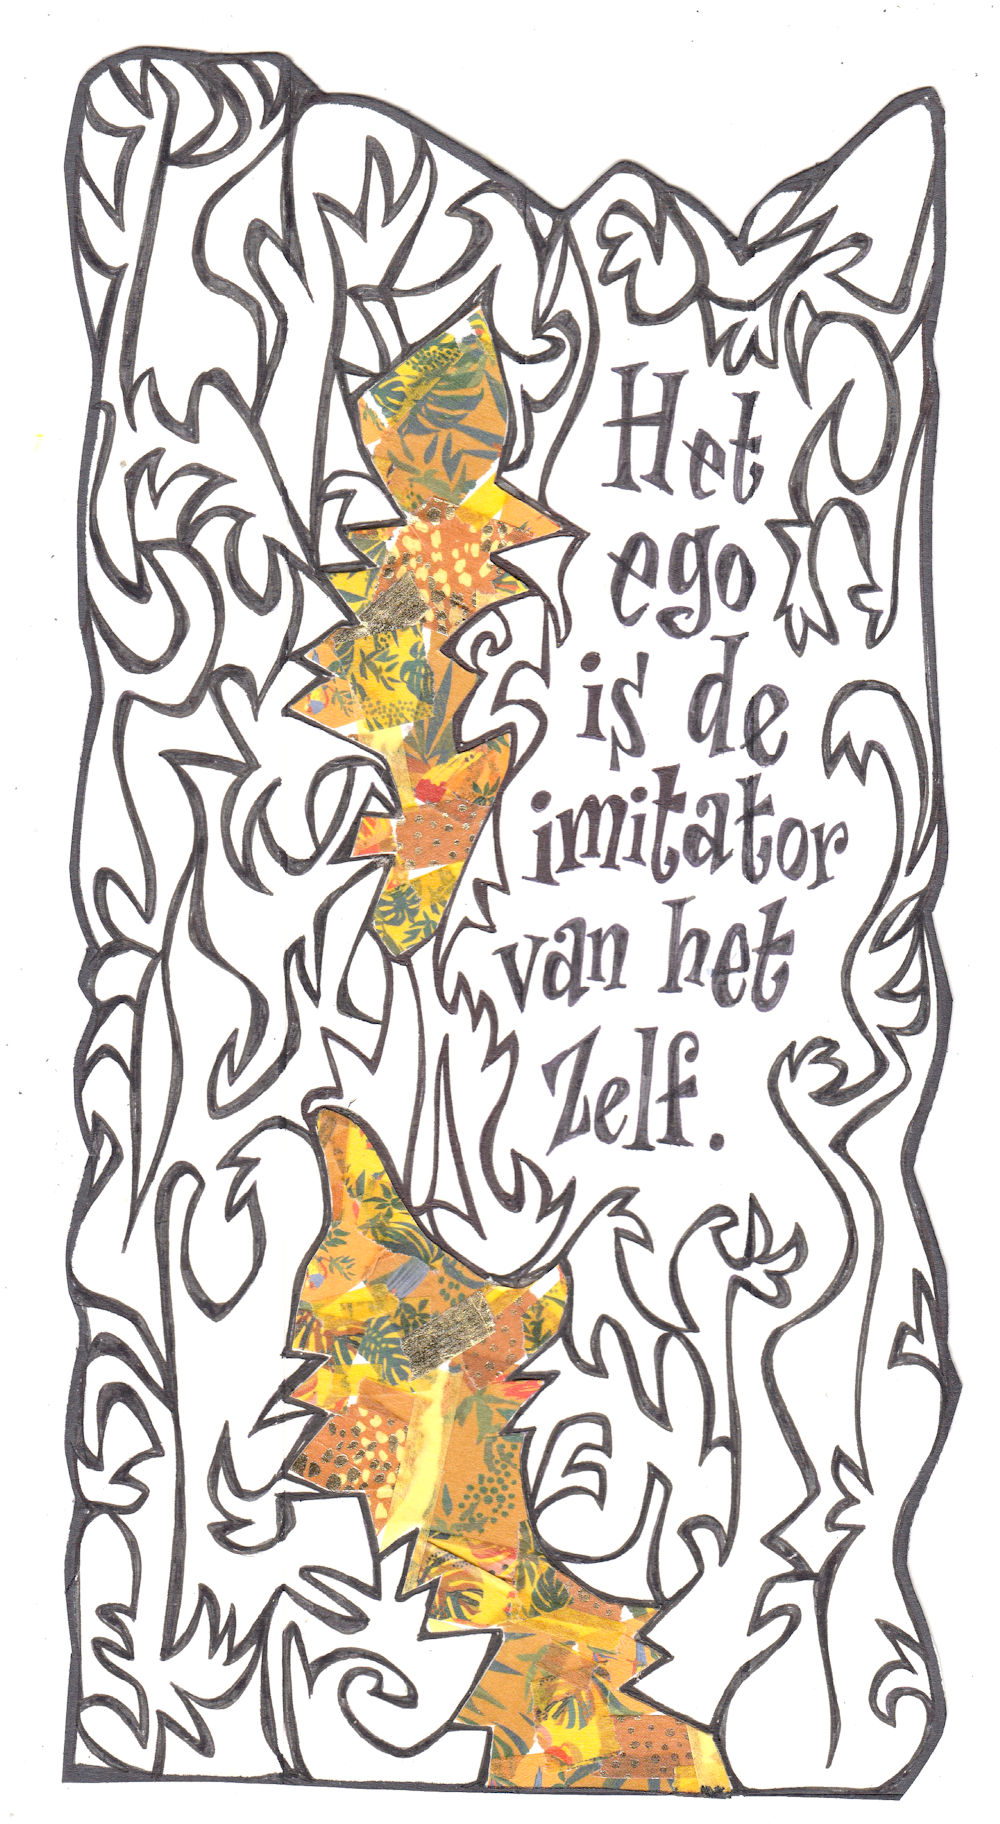 Het
ego
is de
imitator
van het
Zelf.